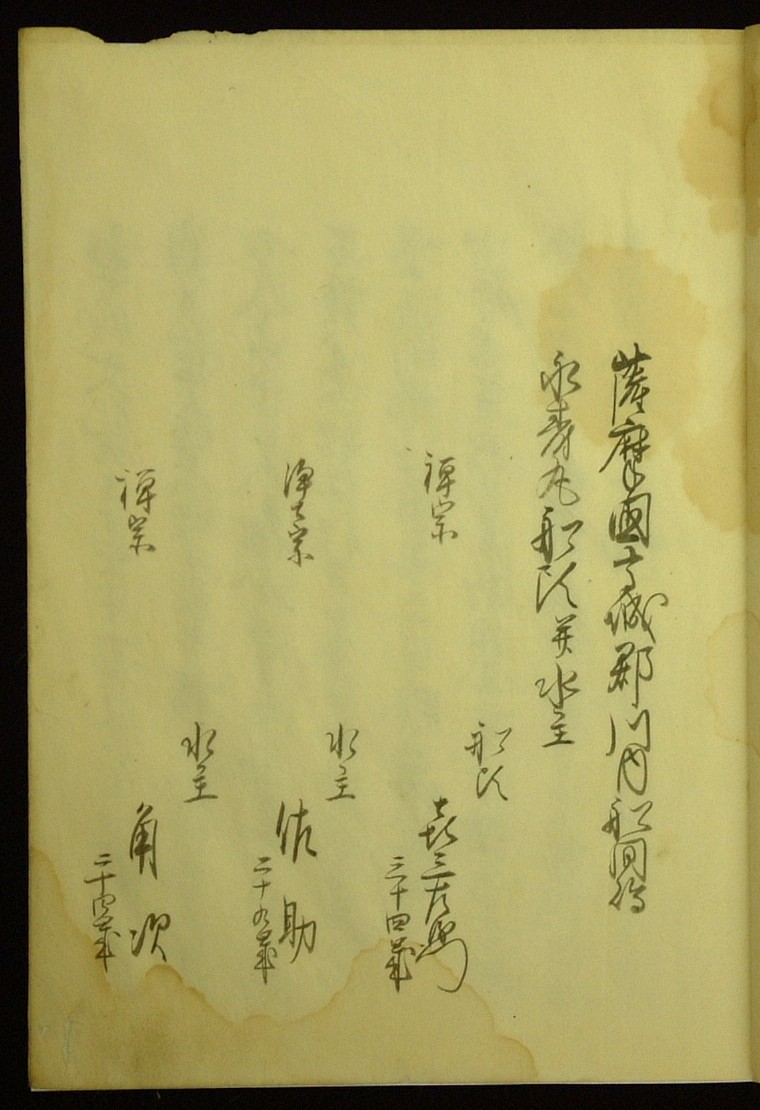 薩摩國高城郡川内船間嶋
永寿丸船頭并水主
船頭
禅宗
喜三左衛門
三十四歳
水主
浄土宗
佐助
二十九歳
水主
禅宗
角次
二十四歳